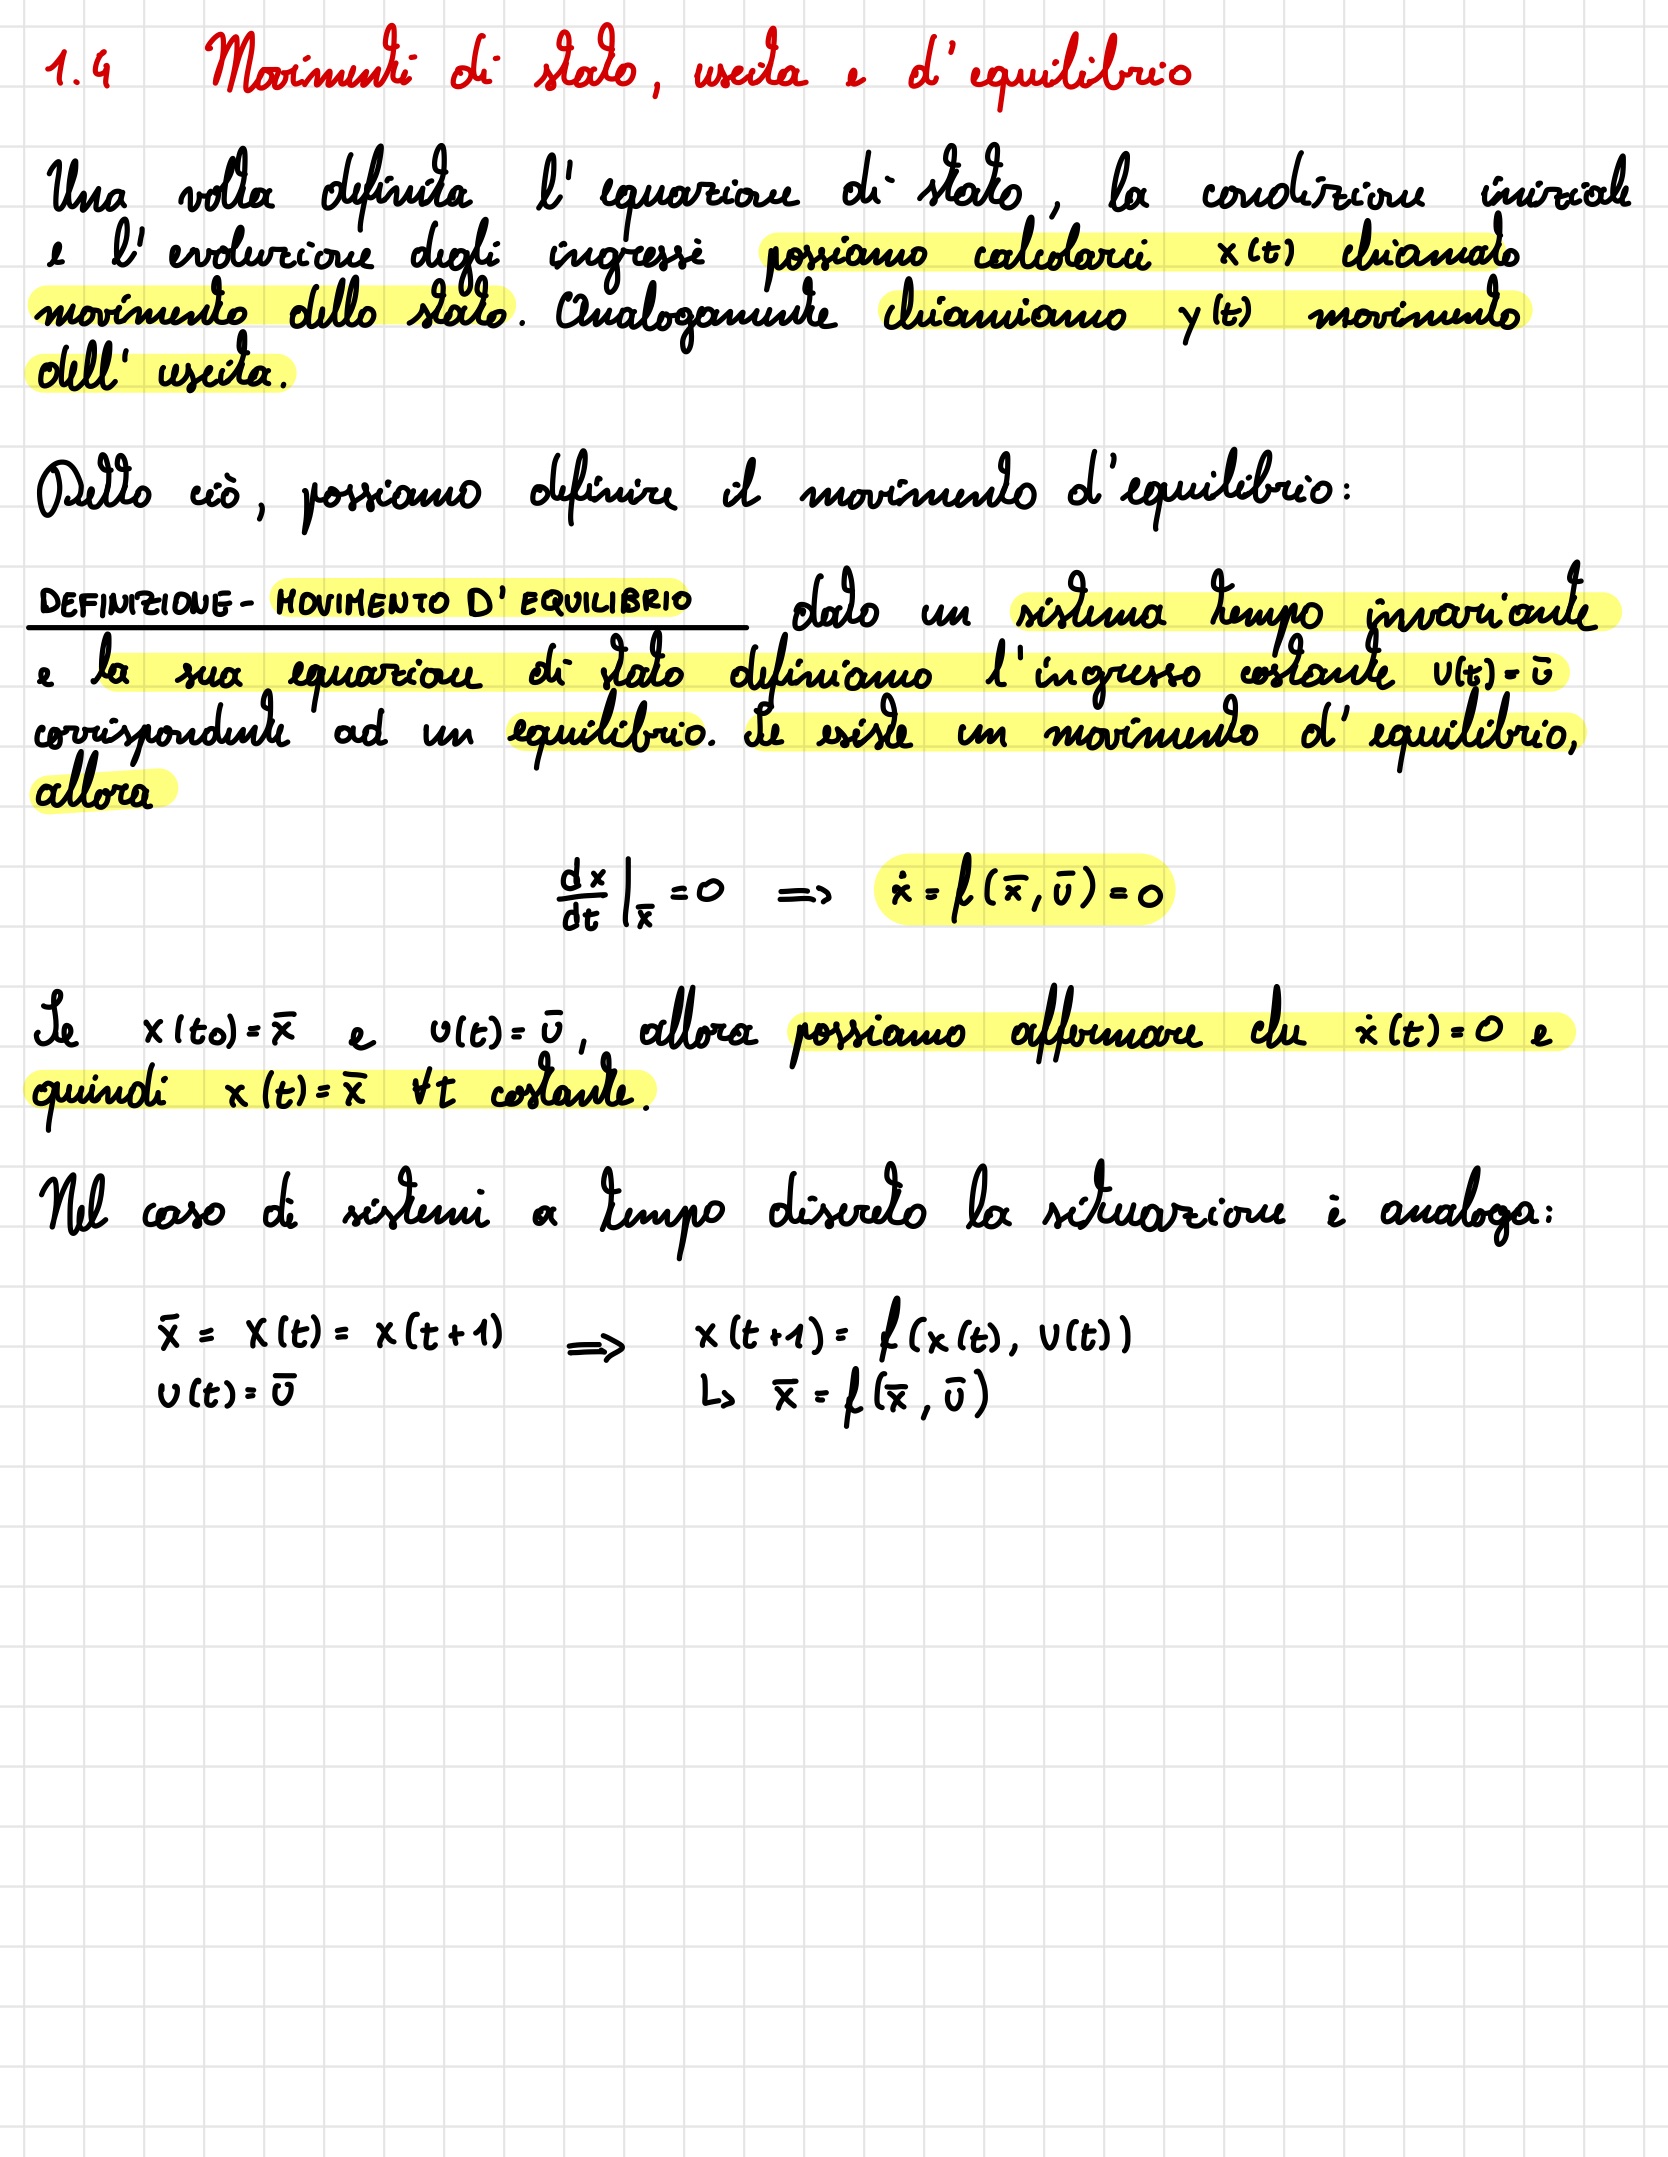 1.4 Movimenti di stato, uscita e d'equilibrio
Una volta definita l'equazione di stato, la condizione iniziale
e l'evoluzione degli ingressi possiamo calcolarci x(t) chiamato
movimento dello stato. Analogamente chiamiamo y(t) movimento
dell'uscita.
Detto ciò, possiamo definire il movimento d'equilibrio:
DEFINIZIONE - MOVIMENTO D'EQUILIBRIO dato un sistema tempo invariante
e la sua equazione di stato definiamo l'ingresso costante u(t) = ū
corrispondente ad un equilibrio. Se esiste un movimento d'equilibrio,
allora
dx/dt |x̄ = 0 ⟹ ẋ = f(x̄, ū) = 0
Se x(t0) = x̄ e u(t) = ū, allora possiamo affermare che ẋ(t) = 0 e
quindi x(t) = x̄ ∀t costante.
Nel caso di sistemi a tempo discreto la situazione è analoga:
x̄ = x(t) = x(t+1) ⟹ x(t+1) = f(x(t), u(t))
u(t) = ū ↳ x̄ = f(x̄, ū)